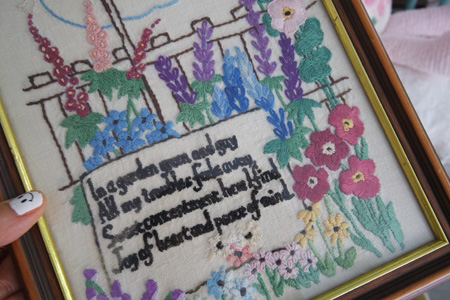 In a garden green and gay
All my troubles fade away,
Sweet contentment here I find
Joy of heart and peace of mind